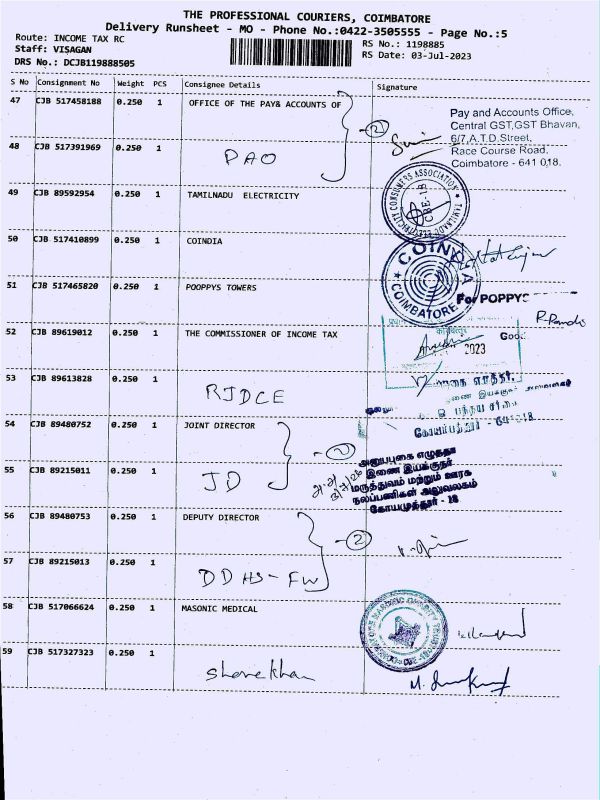 THE PROFESSIONAL COURIERS, COIMBATORE
Delivery Runsheet - MO - Phone No.:0422-3505555 - Page No.:5
Route: INCOME TAX RC
Staff: VISAGAN
DRS No.: DCJB119888505
RS No.: 1198885
RS Date: 03-Jul-2023
S No Consignment No Weight PCS Consignee Details Signature
47 CJB 517458188 0.250 1 OFFICE OF THE PAY& ACCOUNTS OF
2
Pay and Accounts Office,
Central GST,GST Bhavan,
6/7,A.T.D.Street,
Race Course Road,
Coimbatore - 641 018.
48 CJB 517391969 0.250 1 PAO
49 CJB 89592954 0.250 1 TAMILNADU ELECTRICITY
TAMILNADU ELECTRICITY CONSUMERS ASSOCIATION
CBE-18
50 CJB 517410899 0.250 1 COINDIA
COINDIA
COIMBATORE
51 CJB 517465820 0.250 1 POOPPYS TOWERS
For POPPYS
52 CJB 89619012 0.250 1 THE COMMISSIONER OF INCOME TAX
2023
53 CJB 89613828 0.250 1 RJDCE
54 CJB 89480752 0.250 1 JOINT DIRECTOR
2
அனுப்புகை எழுத்தர்
இணை இயக்குநர்
மருத்துவம் மற்றும் ஊரக
நலப்பணிகள் அலுவலகம்
கோயமுத்தூர் - 18
55 CJB 89215011 0.250 1 JD
56 CJB 89480753 0.250 1 DEPUTY DIRECTOR
2
57 CJB 89215013 0.250 1 DDHS-FW
58 CJB 517066624 0.250 1 MASONIC MEDICAL
59 CJB 517327323 0.250 1 Sharekhan